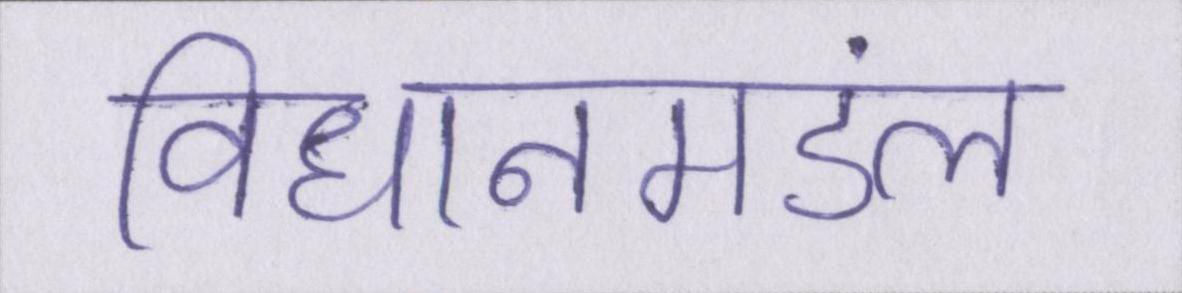 विधानमडंल